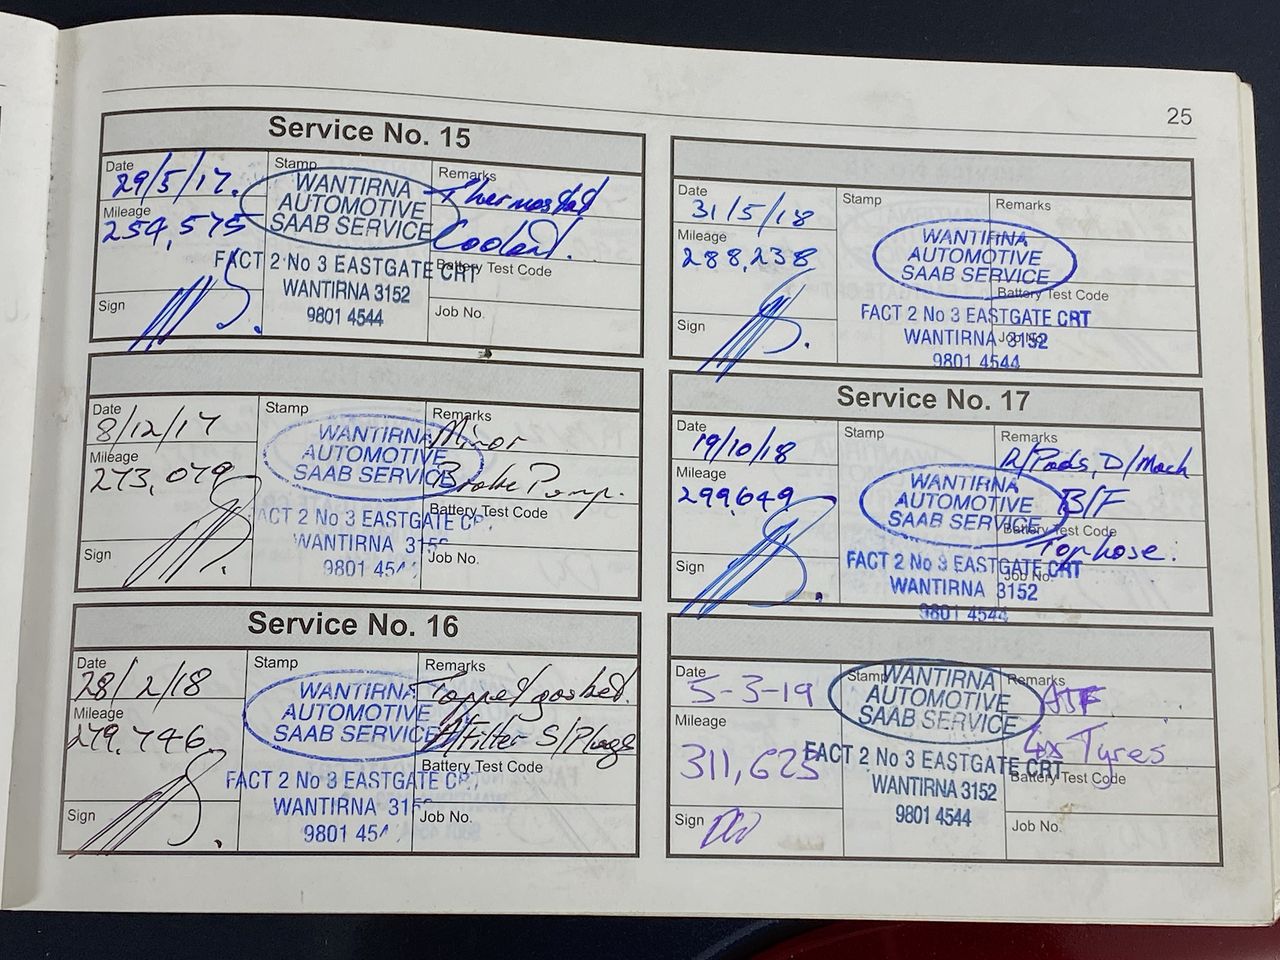 25
Service No. 15
Date
29/5/17.
Stamp
WANTIRNA
AUTOMOTIVE
SAAB SERVICE
FACT 2 No 3 EASTGATE CRT
WANTIRNA 3152
9801 4544
Remarks
Thermostat
Coolant.
Mileage
254,575
Battery Test Code
Sign
Job No.
Date
8/12/17
Stamp
WANTIRNA
AUTOMOTIVE
SAAB SERVICE
FACT 2 No 3 EASTGATE
WANTIRNA 315
9801 45
Remarks
Minor
Brake Pump.
Mileage
273,079
Battery Test Code
Sign
Job No.
Service No. 16
Date
28/2/18
Stamp
WANTIRNA
AUTOMOTIVE
SAAB SERVICE
FACT 2 No 3 EASTGATE
WANTIRNA 315
9801 45
Remarks
Tappet gasket.
A/Filter S/Plugs
Mileage
279,746
Battery Test Code
Sign
Job No.
Date
31/5/18
Stamp
WANTIRNA
AUTOMOTIVE
SAAB SERVICE
FACT 2 No 3 EASTGATE CRT
WANTIRNA 3152
9801 4544
Remarks
Mileage
288,238
Battery Test Code
Sign
Job No.
Service No. 17
Date
19/10/18
Stamp
WANTIRNA
AUTOMOTIVE
SAAB SERVICE
FACT 2 No 3 EASTGATE CRT
WANTIRNA 3152
9801 4544
Remarks
R/Pads, D/Mach
B/F
Top hose.
Mileage
299,649
Battery Test Code
Sign
Job No.
Date
5-3-19
Stamp
WANTIRNA
AUTOMOTIVE
SAAB SERVICE
FACT 2 No 3 EASTGATE CRT
WANTIRNA 3152
9801 4544
Remarks
4x Tyres
Mileage
311,625
Battery Test Code
Sign
Job No.